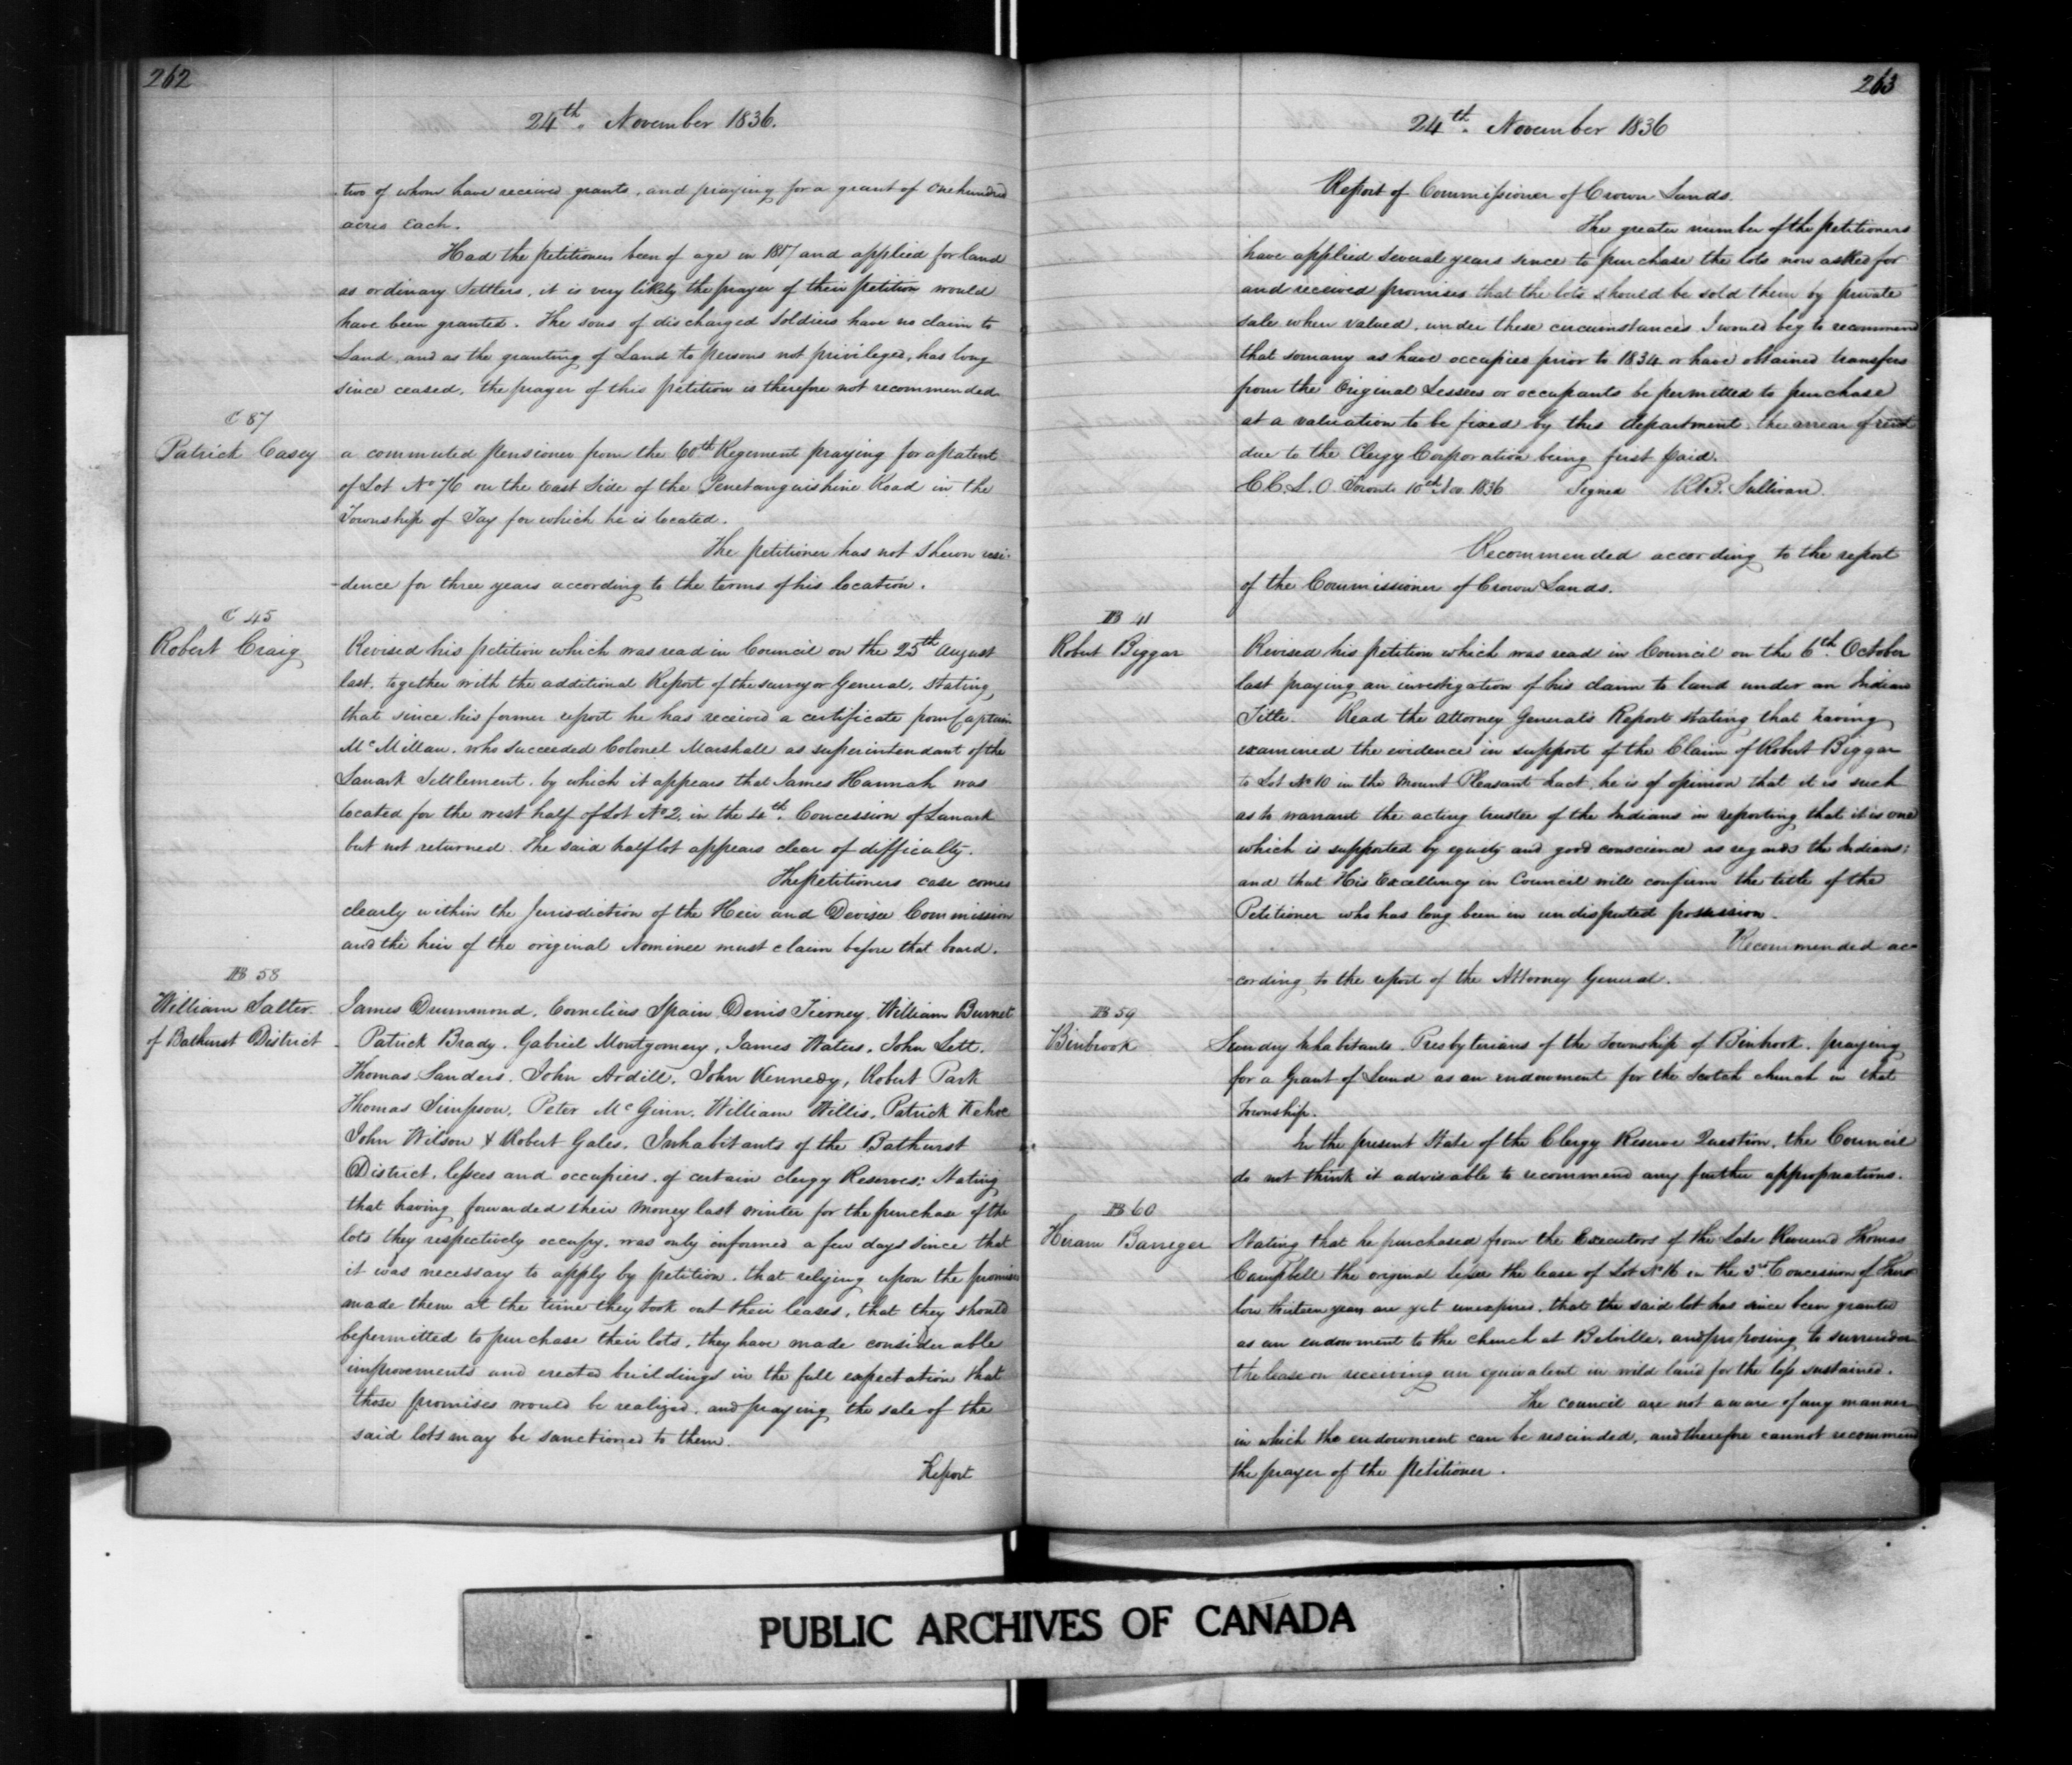 262
24th. November 1836.
two of whom have received grants, and praying for a grant of one hundred
acres Each.
Had the petitioners been of age in 1817 and applied for land
as ordinary Settlers, it is very likely the prayer of their petition would
have been granted. The sons of discharged soldiers have no claim to
Land, and as the granting of Land to persons not privileged, has long
since ceased, the prayer of this petition is therefore not recommended
C 87
Patrick Casey
a commuted pensioner from the 60th Regiment praying for a patent
of Lot No 76 on the East Side of the Penetanguishine Road in the
Township of Tay for which he is located.
The petitioner has not shewn resi-
-dence for three years according to the terms of his location.
C 45
Robert Craig
Revised his petition which was read in Council on the 25th August
last, together with the additional Report of the surveyor General, stating,
that since his former report he has received a certificate from Captain
McMillan, who succeeded Colonel Marshall as superintendant of the
Lanark Settlement, by which it appears that James Hannah was
located for the west half of Lot No 2, in the 4th. Concession of Lanark
but not returned. The said half lot appears clear of difficulty.
The petitioners case comes
clearly within the Jurisdiction of the Heir and Devisee Commission
and the heir of the original Nominee must claim before that board.
B 58
William Salter
of Bathurst District
James Drummond, Cornelius Spain, Denis Tierney, William Burnet
Patrick Brady, Gabriel Montgomery, James Waters, John Lett,
Thomas Sanders, John Ardill, John Kennedy, Robert Park
Thomas Simpson, Peter McGinn, William Willis, Patrick Kehoe
John Wilson & Robert Gales, Inhabitants of the Bathurst
District, lessees and occupiers, of certain clergy Reserves; Stating
that having forwarded their money last winter for the purchase of the
lots they respectively occupy, was only informed a few days since that
it was necessary to apply by petition, that relying upon the promises
made them at the time they took out their leases, that they should
be permitted to purchase their lots, they have made considerable
improvements and erected buildings in the full expectation that
those promises would be realized, and praying the sale of the
said lots may be sanctioned to them.
Report
263
24th. November 1836
Report of Commissioner of Crown Lands.
The greater number of the petitioners
have applied several years since to purchase the lots now asked for
and received promises that the lots should be sold them by private
sale when valued, under these circumstances I would beg to recommend
that so many as have occupied prior to 1834 or have obtained transfers
from the Original Lessees or occupants be permitted to purchase
at a valuation to be fixed by this department, the arrear of rent
due to the Clergy Corporation being first paid.
C.C.L.O. Toronto 10th Nov 1836 Signed R.B. Sullivan
Recommended according to the report
of the Commissioner of Crown Lands.
B 41
Robert Biggar
Revised his petition which was read in Council on the 6th. October
last praying an investigation of his claim to land under an Indian
Title. Read the Attorney General's Report stating that having
examined the evidence in support of the Claim of Robert Biggar
to Lot No 10 in the Mount Pleasant tract, he is of opinion that it is such
as to warrant the acting trustee of the Indians in reporting that it is one
which is supported by equity and good conscience as regards the Indians:
and that His Excellency in Council will confirm the title of the
Petitioner who has long been in undisputed possession.
Recommended ac-
-cording to the report of the Attorney General.
B 59
Binbrook
Sundry Inhabitants. Presbyterians of the Township of Binbrook, praying
for a Grant of Land as an endowment for the Scotch church in that
Township.
In the present State of the Clergy Reserve Question, the Council
do not think it advisable to recommend any further appropriations.
B 60
Hiram Barriger
Stating that he purchased from the Executors of the Late Reverend Thomas
Campbell the original lessee the lease of Lot No 16 in the 3rd. Concession of Thur
low thirteen years are yet unexpired, that the said lot has since been granted
as an endowment to the church at Belville, and proposing to surrender
the lease on receiving an equivalent in wild land for the loss sustained.
The council are not aware of any manner
in which the endowment can be rescinded, and therefore cannot recommend
the prayer of the Petitioner.
PUBLIC ARCHIVES OF CANADA